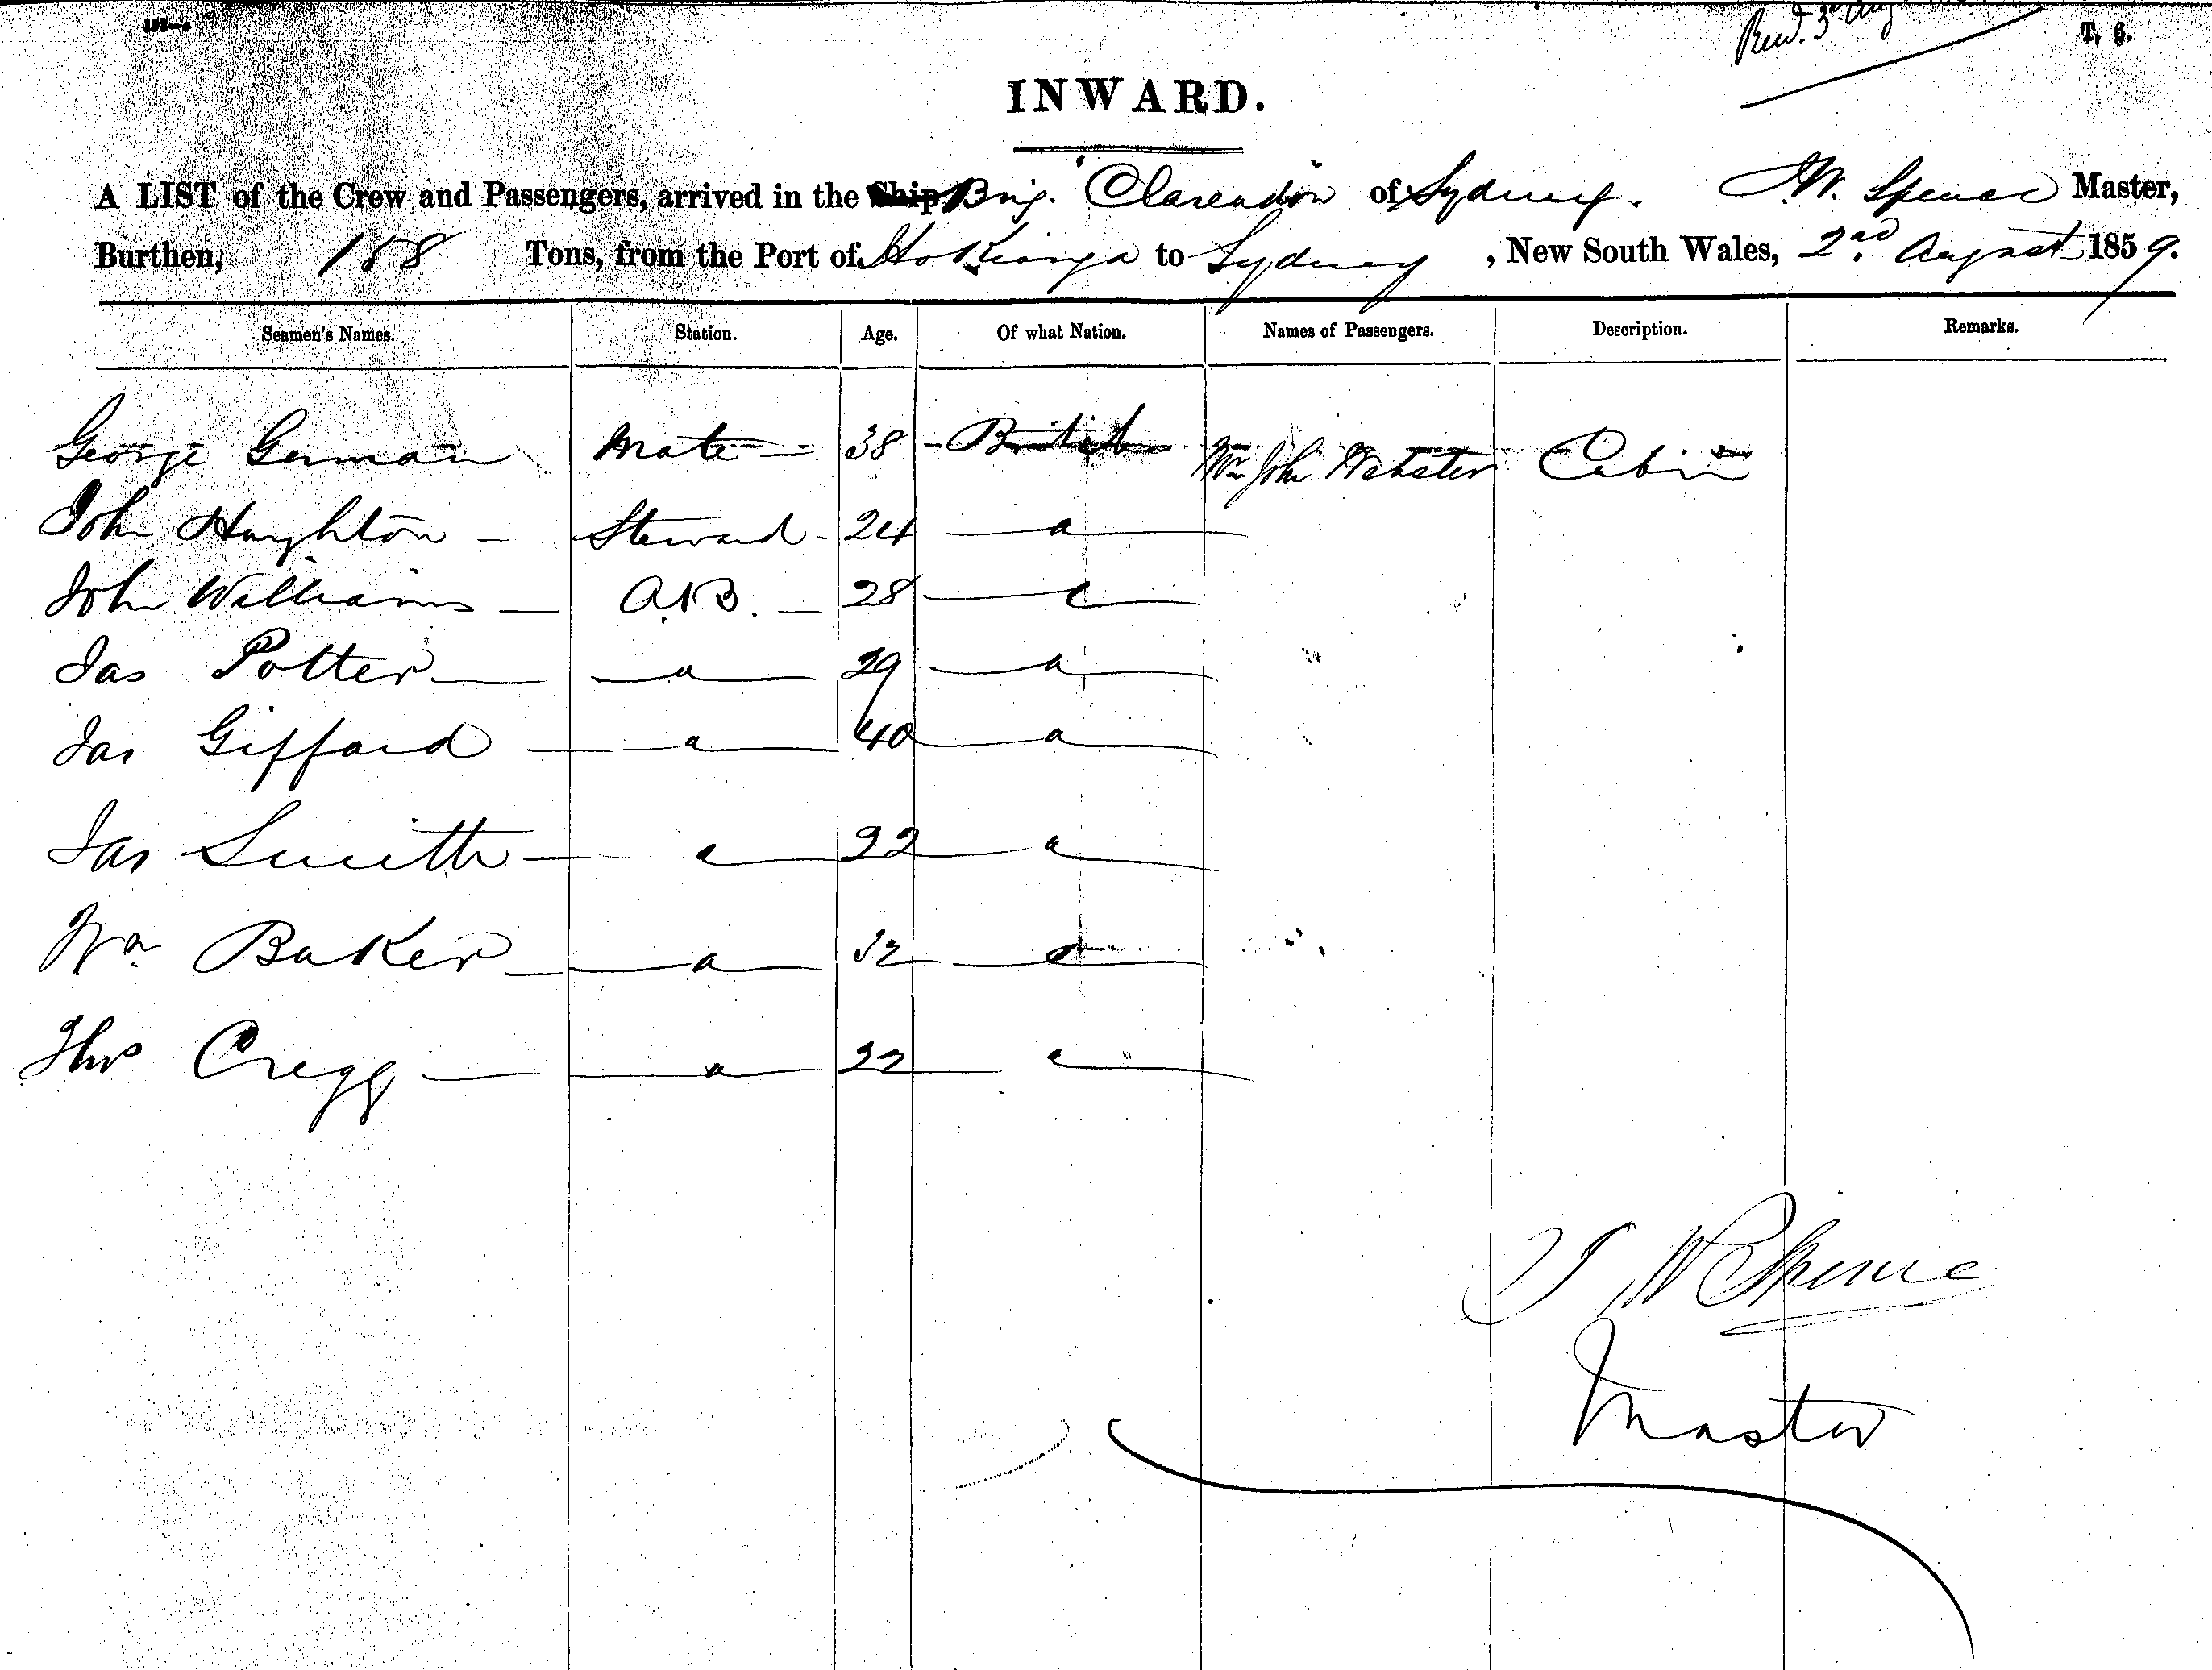 Recd. 3rd Aug
T. G.
INWARD.
A LIST of the Crew and Passengers, arrived in the Ship Brig. "Clarendon" of Sydney. J.W. Spence Master,
Burthen, 158 Tons, from the Port of Hokianga to Sydney, New South Wales, 2nd August 1859.
Seamen's Names. Station. Age. Of what Nation. Names of Passengers. Description. Remarks.
George German Mate 38 British Mr John Webster Cabin
John Haughton Steward 24 a
John Williams A.B. 28 a
Jas Potter a 29 a
Jas Giffard a 40 a
Jas Smith a 22 a
Wm Baker a 32 a
Thos Cregg a 22 a
J W Spence
Master